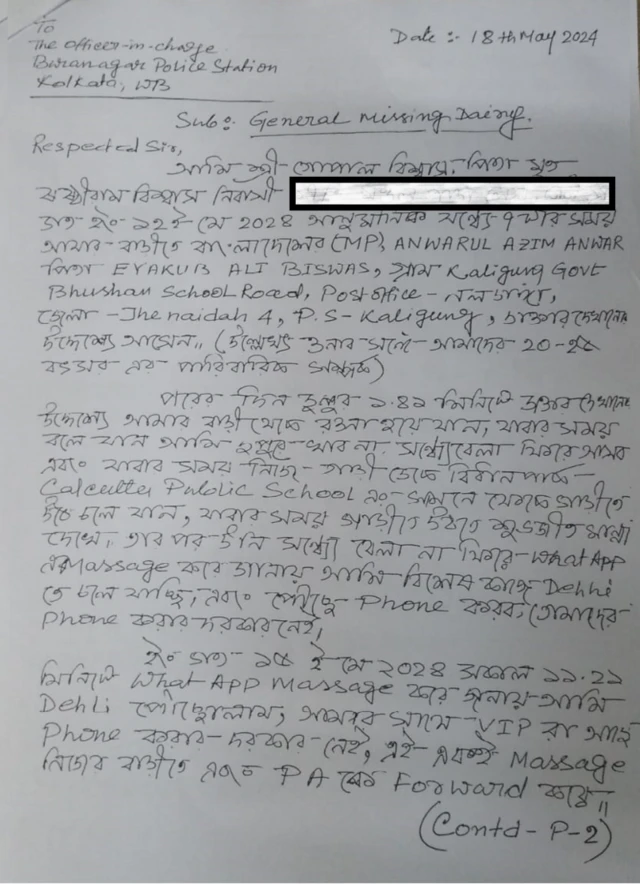 To
The officer-in-charge
Baranagar Police Station
Kolkata, WB
Date :- 18th May 2024
Sub:. General Missing Dairy.
Respected Sir,
আমি শ্রী গোপাল বিশ্বাস, পিতা মৃত
বিশ্বাস নিবাসী
গত ইং ১২ই মে 2024 আনুমানিক সন্ধ্যে ৭ টার সময়
আমার বাড়ীতে বাংলাদেশের (MP) ANWARUL AZIM ANWAR
পিতা EYAKUB ALI BISWAS, গ্রাম Kaligung Govt
Bhushan School Road, Post office - নলডাঙ্গা,
জেলা - Jhenaidah 4, P.S - Kaligung, ডাক্তার দেখানোর
উদ্দেশ্যে আসেন।। (উল্লেখ্য ওনার সঙ্গে আমাদের 20-২৫
বৎসর এর পারিবারিক সম্পর্ক)
পরের দিন দুপুর ১.৪১ মিনিটে ডাক্তার দেখানোর
উদ্দেশ্যে আমার বাড়ী থেকে রওনা হয়ে যান, যাবার সময়
বলে যান আমি দুপুরে খাব না, সন্ধ্যেবেলা ফিরে আসব
এবং যাবার সময় নিজে গাড়ী ডেকে বিধান পার্ক
Calcutta Public School এর সামনে থেকে গাড়ীতে
উঠে চলে যান, যাবার সময় গাড়ীতে উঠতে শুভজীত মান্না
দেখে, তার পর উনি সন্ধ্যে বেলা না ফিরে What App
এ Massage করে জানায় আমি বিশেষ কাজে Dehli
তে চলে যাচ্ছি, এবং পৌঁছে Phone করব, তোমাদের
Phone করার দরকার নেই,
ইং গত ১৫ ই মে 2024 সকাল ১১.২১
মিনিটে What App Massage করে জানায় আমি
Dehli পৌঁছোলাম, আমার সাথে VIP রা আছে
Phone করার দরকার নেই, এই একই Massage
নিজের বাড়ীতে এবং PA কে Forward করে।।
(Contd - P-2)